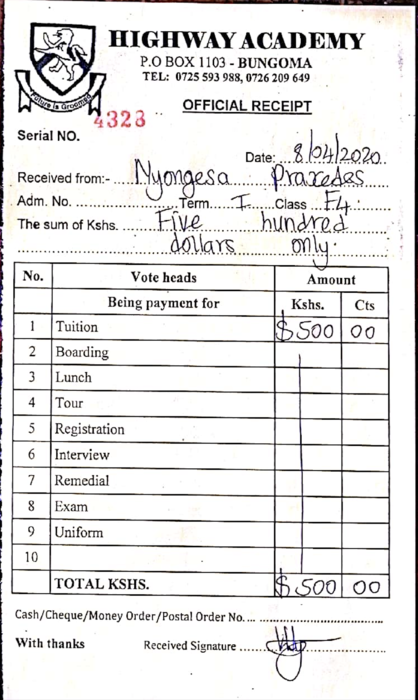 HIGHWAY ACADEMY
P.O BOX 1103 - BUNGOMA
TEL: 0725 593 988, 0726 209 649
Future is Groomed
OFFICIAL RECEIPT
4323
Serial NO.
Date: 8/04/2020
Received from:- Nyongesa Praxedes
Adm. No. Term I Class F4
The sum of Kshs. Five hundred
dollars only.
No. Vote heads Amount
Being payment for Kshs. Cts
1 Tuition $500 00
2 Boarding
3 Lunch
4 Tour
5 Registration
6 Interview
7 Remedial
8 Exam
9 Uniform
10
TOTAL KSHS. $500 00
Cash/Cheque/Money Order/Postal Order No.
With thanks Received Signature